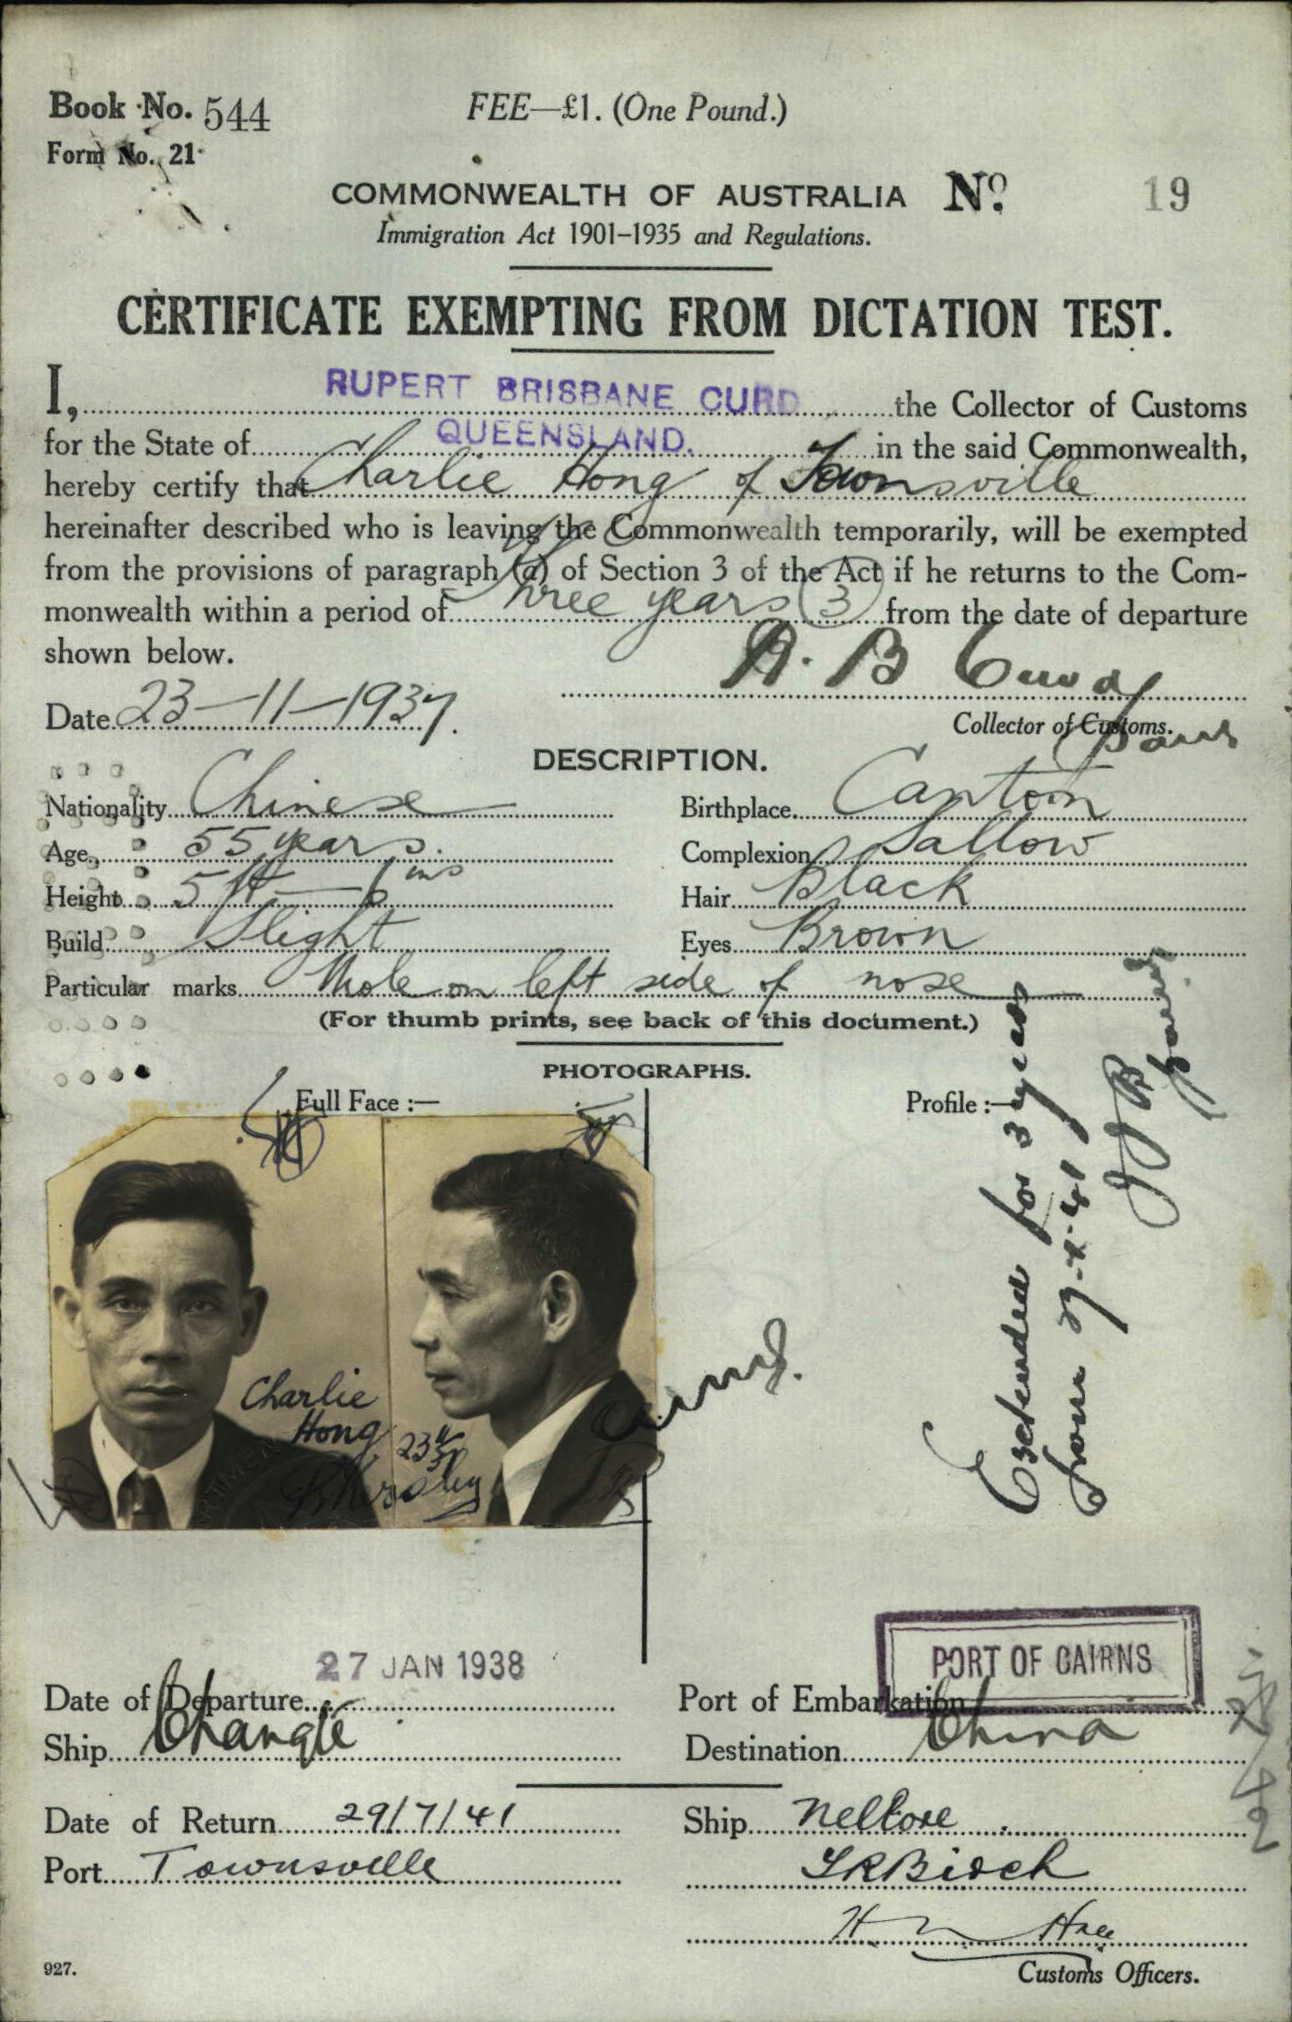 Book No. 544
FEE—£1. (One Pound.)
Form No. 21
COMMONWEALTH OF AUSTRALIA No. 19
Immigration Act 1901–1935 and Regulations.
CERTIFICATE EXEMPTING FROM DICTATION TEST.
I, RUPERT BRISBANE CURD the Collector of Customs
for the State of QUEENSLAND. in the said Commonwealth,
hereby certify that Charlie Hong of Townsville
hereinafter described who is leaving the Commonwealth temporarily, will be exempted
from the provisions of paragraph (a) of Section 3 of the Act if he returns to the Com-
monwealth within a period of Three years (3) from the date of departure
shown below.
R. B. Curd
Date 23-11-1937.
Collector of Customs.
DESCRIPTION.
Nationality Chinese
Birthplace Canton
Age 55 years.
Complexion Sallow
Height 5 ft — 6 ins
Hair Black
Build Slight
Eyes Brown
Particular marks Mole on left side of nose
(For thumb prints, see back of this document.)
PHOTOGRAPHS.
Full Face :—
Profile :—
Charlie
Hong
Extended for 3 years
from 29-7-41
27 JAN 1938
PORT OF CAIRNS
Date of Departure
Port of Embarkation
Ship Changte
Destination China
Date of Return 29/7/41
Ship Nellore
Port Townsville
927.
Customs Officers.